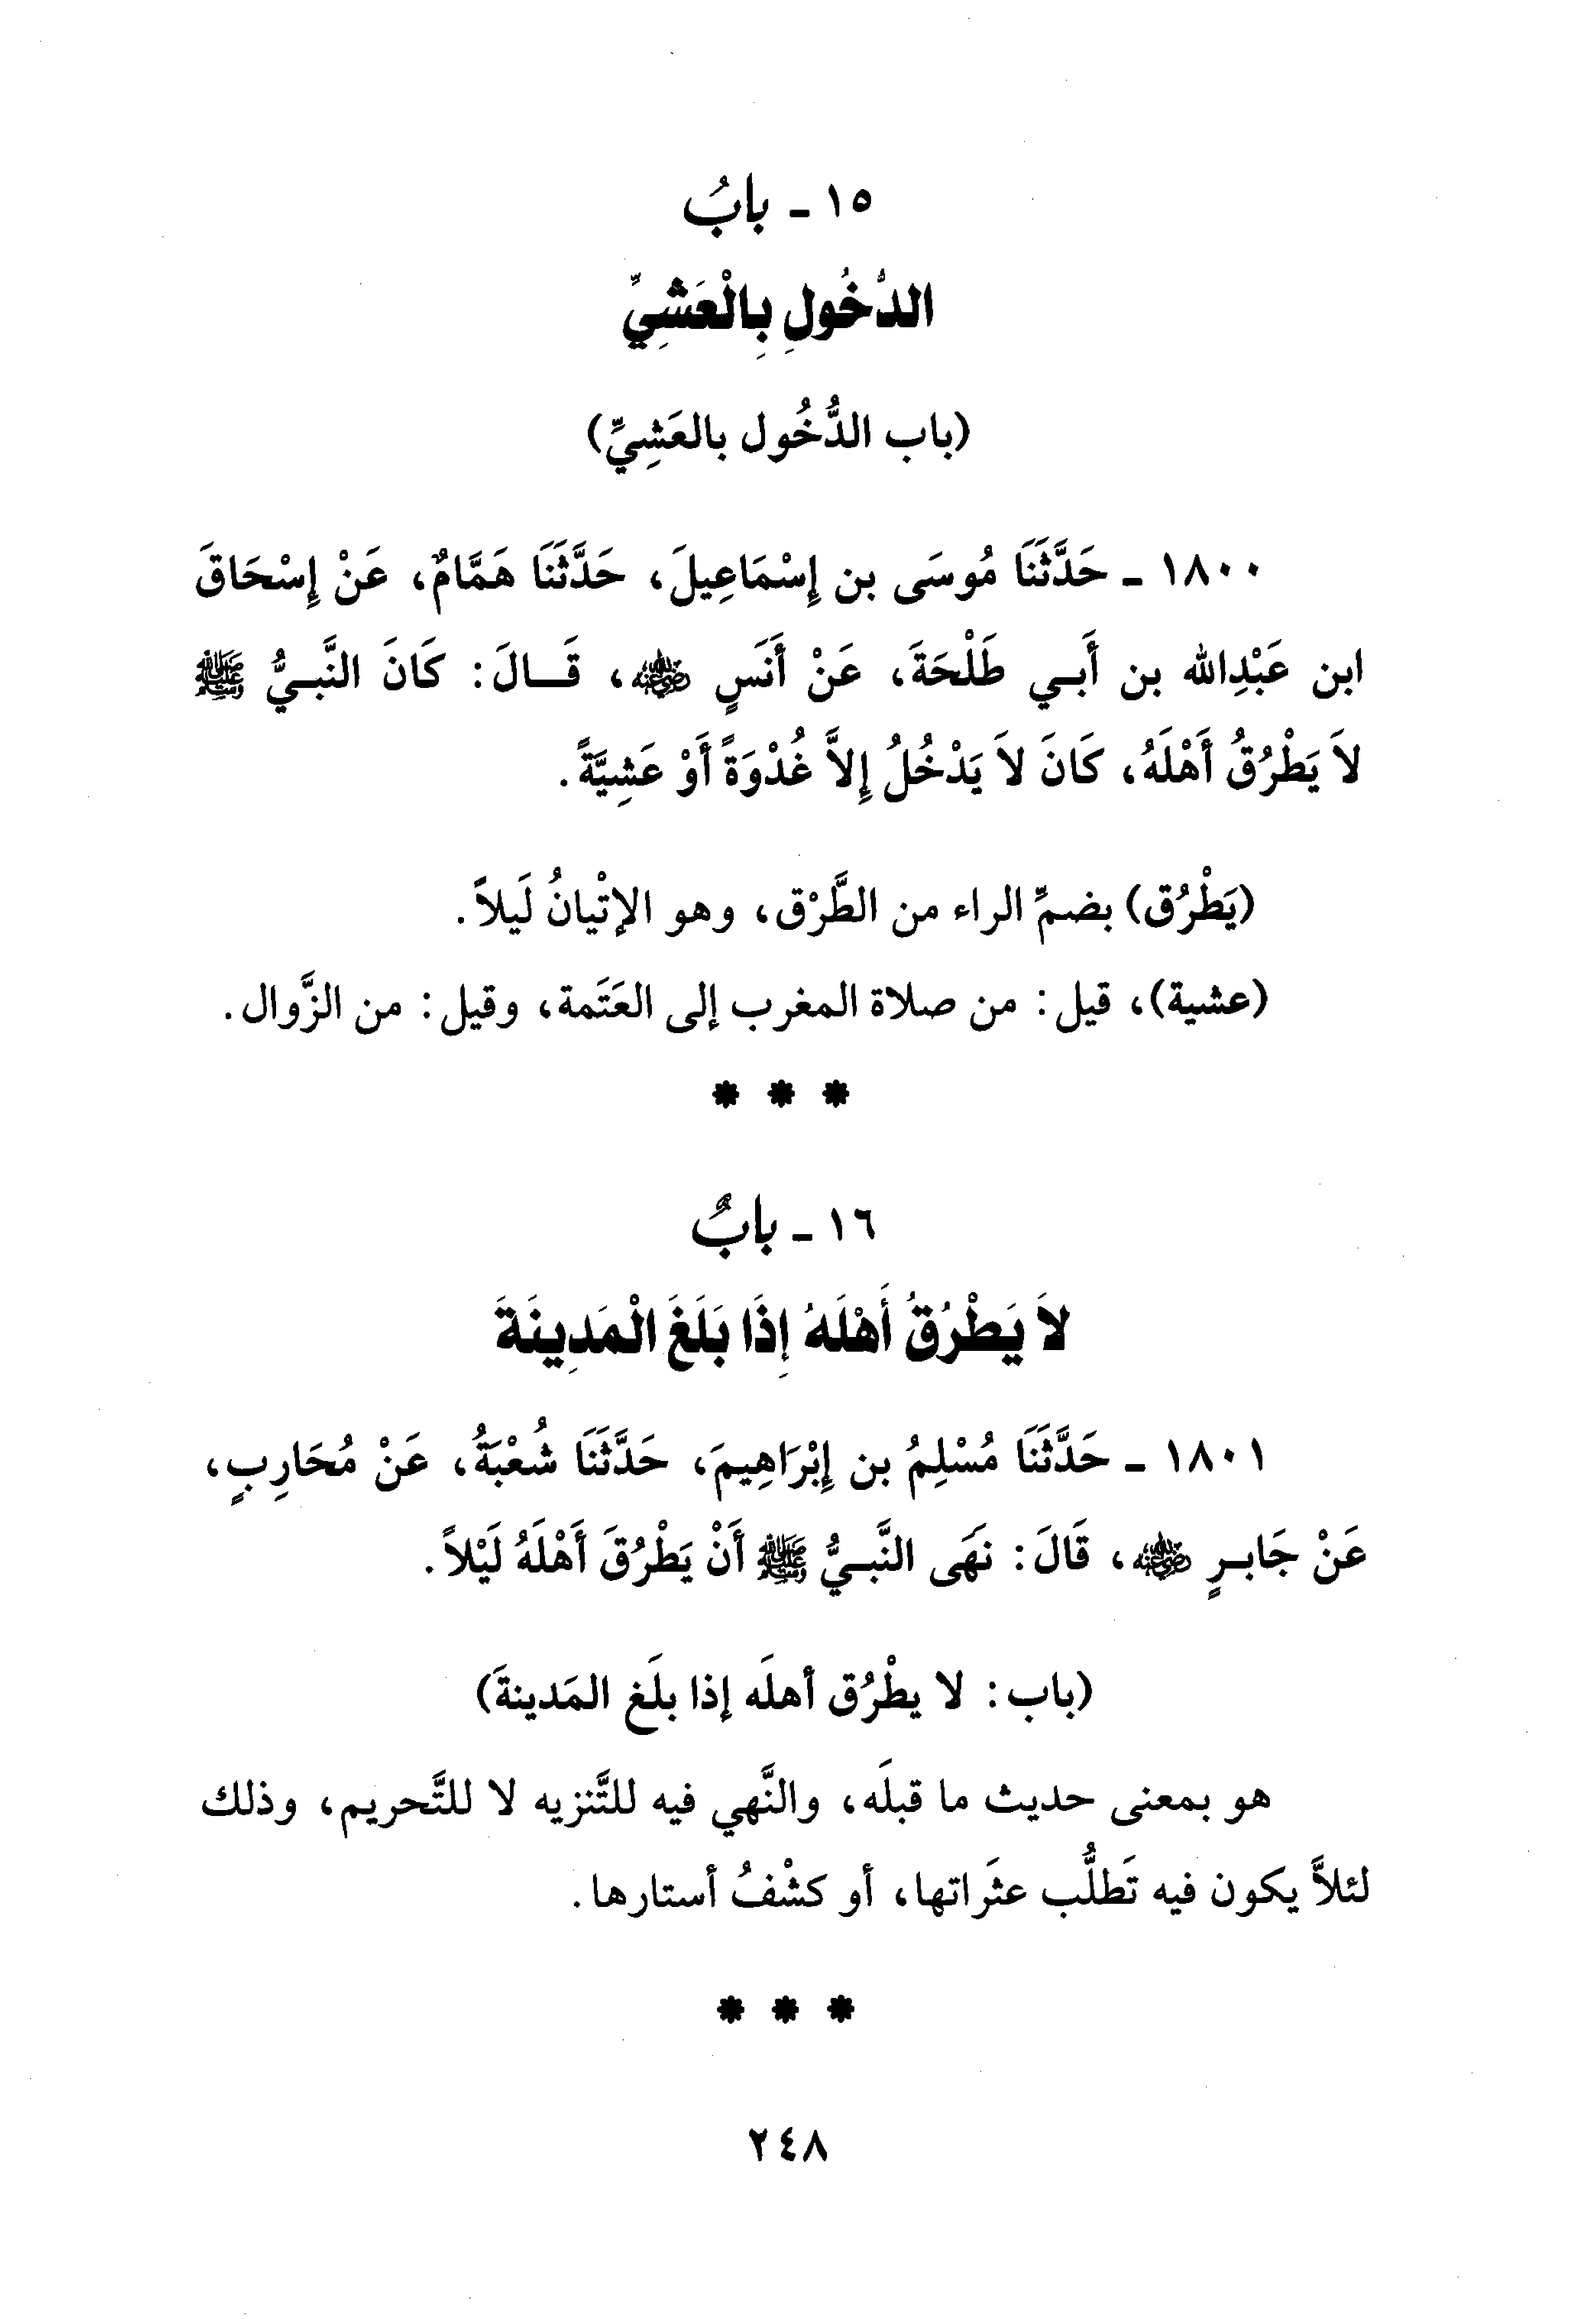 ١٥ ـ بابُ
الدُّخُولِ بِالْعَشِيِّ
(باب الدُّخُول بالعَشِيِّ)
١٨٠٠ ـ حَدَّثَنَا مُوسَى بن إِسْمَاعِيلَ، حَدَّثَنَا هَمَّامٌ، عَنْ إِسْحَاقَ
ابن عَبْدِالله بن أَبـي طَلْحَةَ، عَنْ أَنَسٍ ﵁، قَـالَ: كَانَ النَّبـيُّ ﷺ
لاَ يَطْرُقُ أَهْلَهُ، كَانَ لاَ يَدْخُلُ إِلاَّ غُدْوَةً أَوْ عَشِيَّةً.
(يَطْرُق) بضمِّ الراء من الطَّرْق، وهو الإتْيانُ لَيلاً.
(عشية)، قيل: من صلاة المغرب إلى العَتَمة، وقيل: من الزَّوال.
* * *
١٦ ـ بابٌ
لاَ يَطْرُقُ أَهْلَهُ إِذَا بَلَغَ الْمَدِينَةَ
١٨٠١ ـ حَدَّثَنَا مُسْلِمُ بن إِبْرَاهِيمَ، حَدَّثَنَا شُعْبَةُ، عَنْ مُحَارِبٍ،
عَنْ جَابـرٍ ﵁، قَالَ: نَهَى النَّبـيُّ ﷺ أَنْ يَطْرُقَ أَهْلَهُ لَيْلاً.
(باب: لا يطْرُق أهلَه إذا بلَغ المَدينةَ)
هو بمعنى حديث ما قبلَه، والنَّهي فيه للتَّنزيه لا للتَّحريم، وذلك
لئلاَّ يكون فيه تَطلُّب عثَراتها، أو كشْفُ أستارها.
* * *
٢٤٨